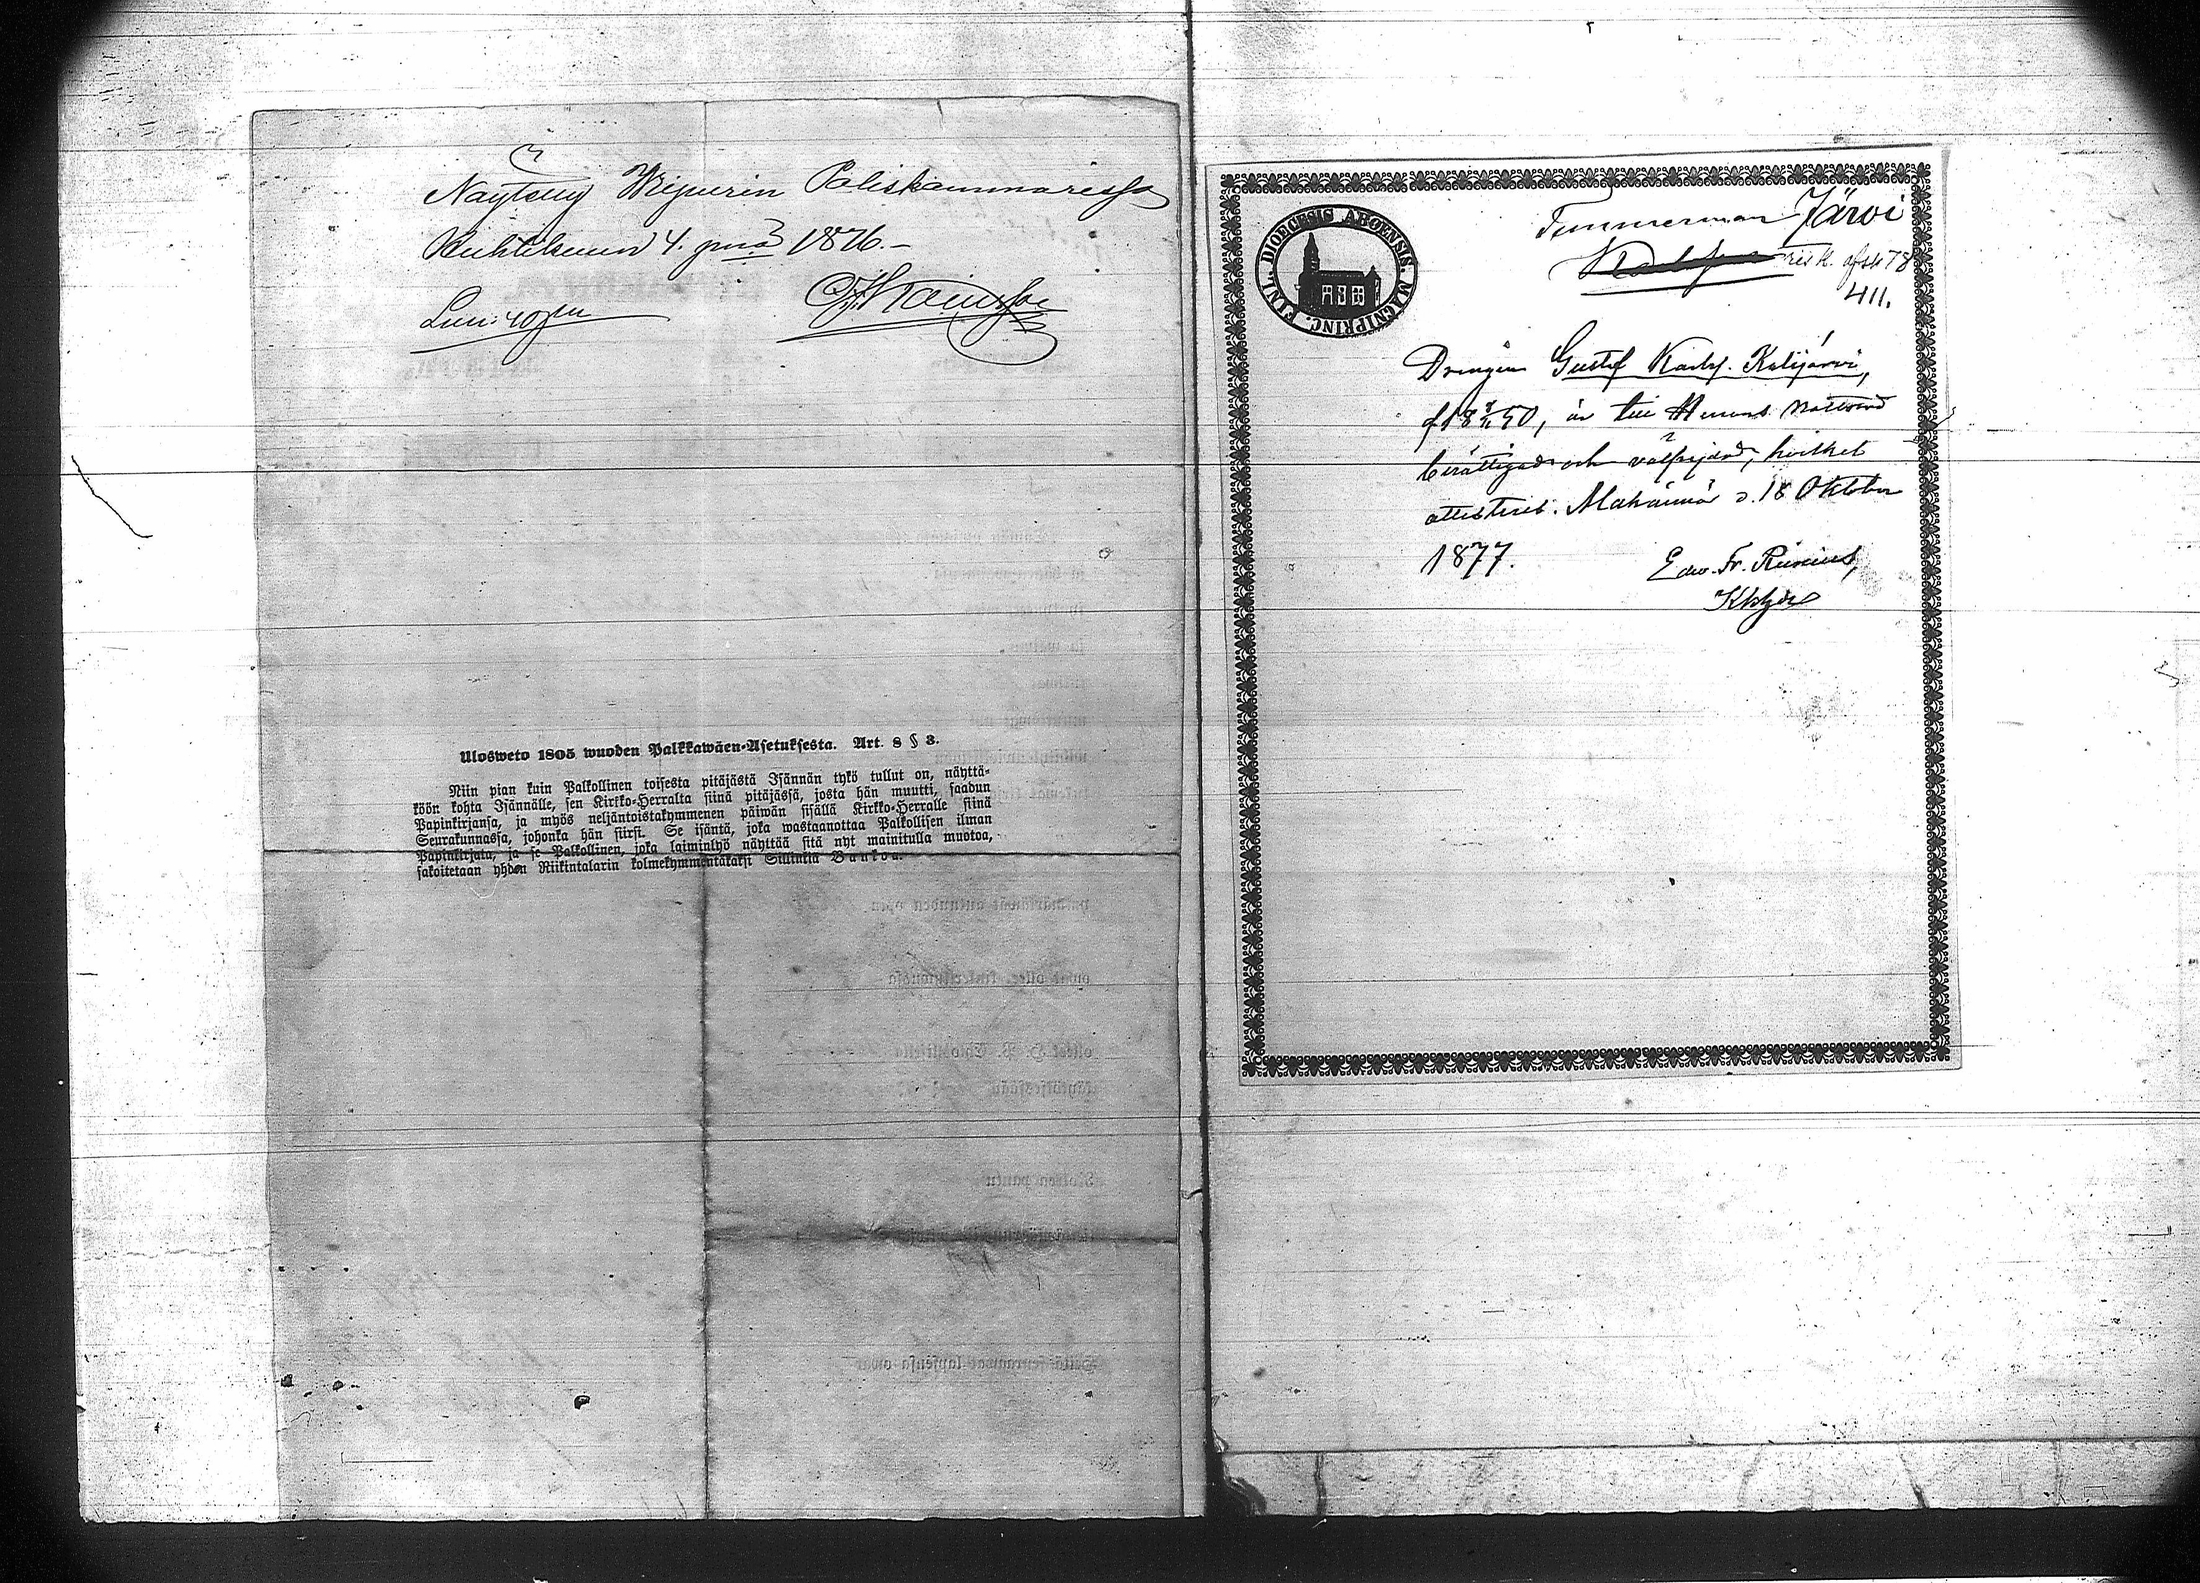 Näytetty Wiipurin Poliskammarissa
Huhtikuun 4. pnä 1876.-
Ulosweto 1805 wuoden Palkkawäen-Asetuksesta. Art. 8 § 3.
Niin pian kuin Palkollinen toisesta pitäjästä Isännän tykö tullut on, näyttä-
köön kohta Isännälle, sen Kirkko-Herralta siinä pitäjässä, josta hän muutti, saadun
Papinkirjansa, ja myös neljäntoistakymmenen päiwän sisällä Kirkko-Herralle siinä
Seurakunnassa, johonka hän siirsi. Se isäntä, joka wastaanottaa Palkollisen ilman
Papinkirjata, ja se Palkollinen, joka laiminlyö näyttää sitä nyt mainitulla muotoa,
sakoitetaan yhden Riikintalarin kolmekymmentäkaksi Sillinkiä Banko.
FINL. DIOECESIS ABOENSIS. MAGNIPRINC.
Timmerman Järvi
411.
Drengen Gustef Karlsf. Kalijärvi,
f 18 50, är till Herrens nattvard
berättigad och välfrejdad, hvilket
attesteras. d. 18 Oktober
1877. Edw. Fr.